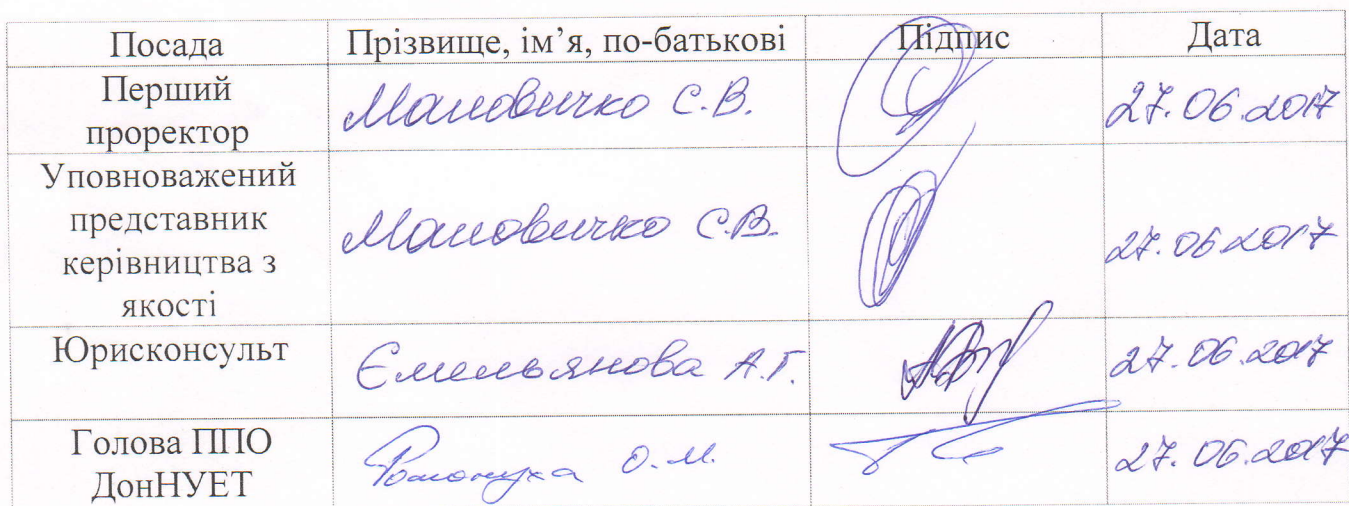 Посада Прізвище, ім’я, по-батькові Підпис Дата
Перший
проректор
Маловичко С.В. 27.06.2017
Уповноважений
представник
керівництва з
якості
Маловичко С.В. 27.06.2017
Юрисконсульт
Ємельянова А.Г. 27.06.2017
Голова ППО
ДонНУЕТ
О.М. 27.06.2017